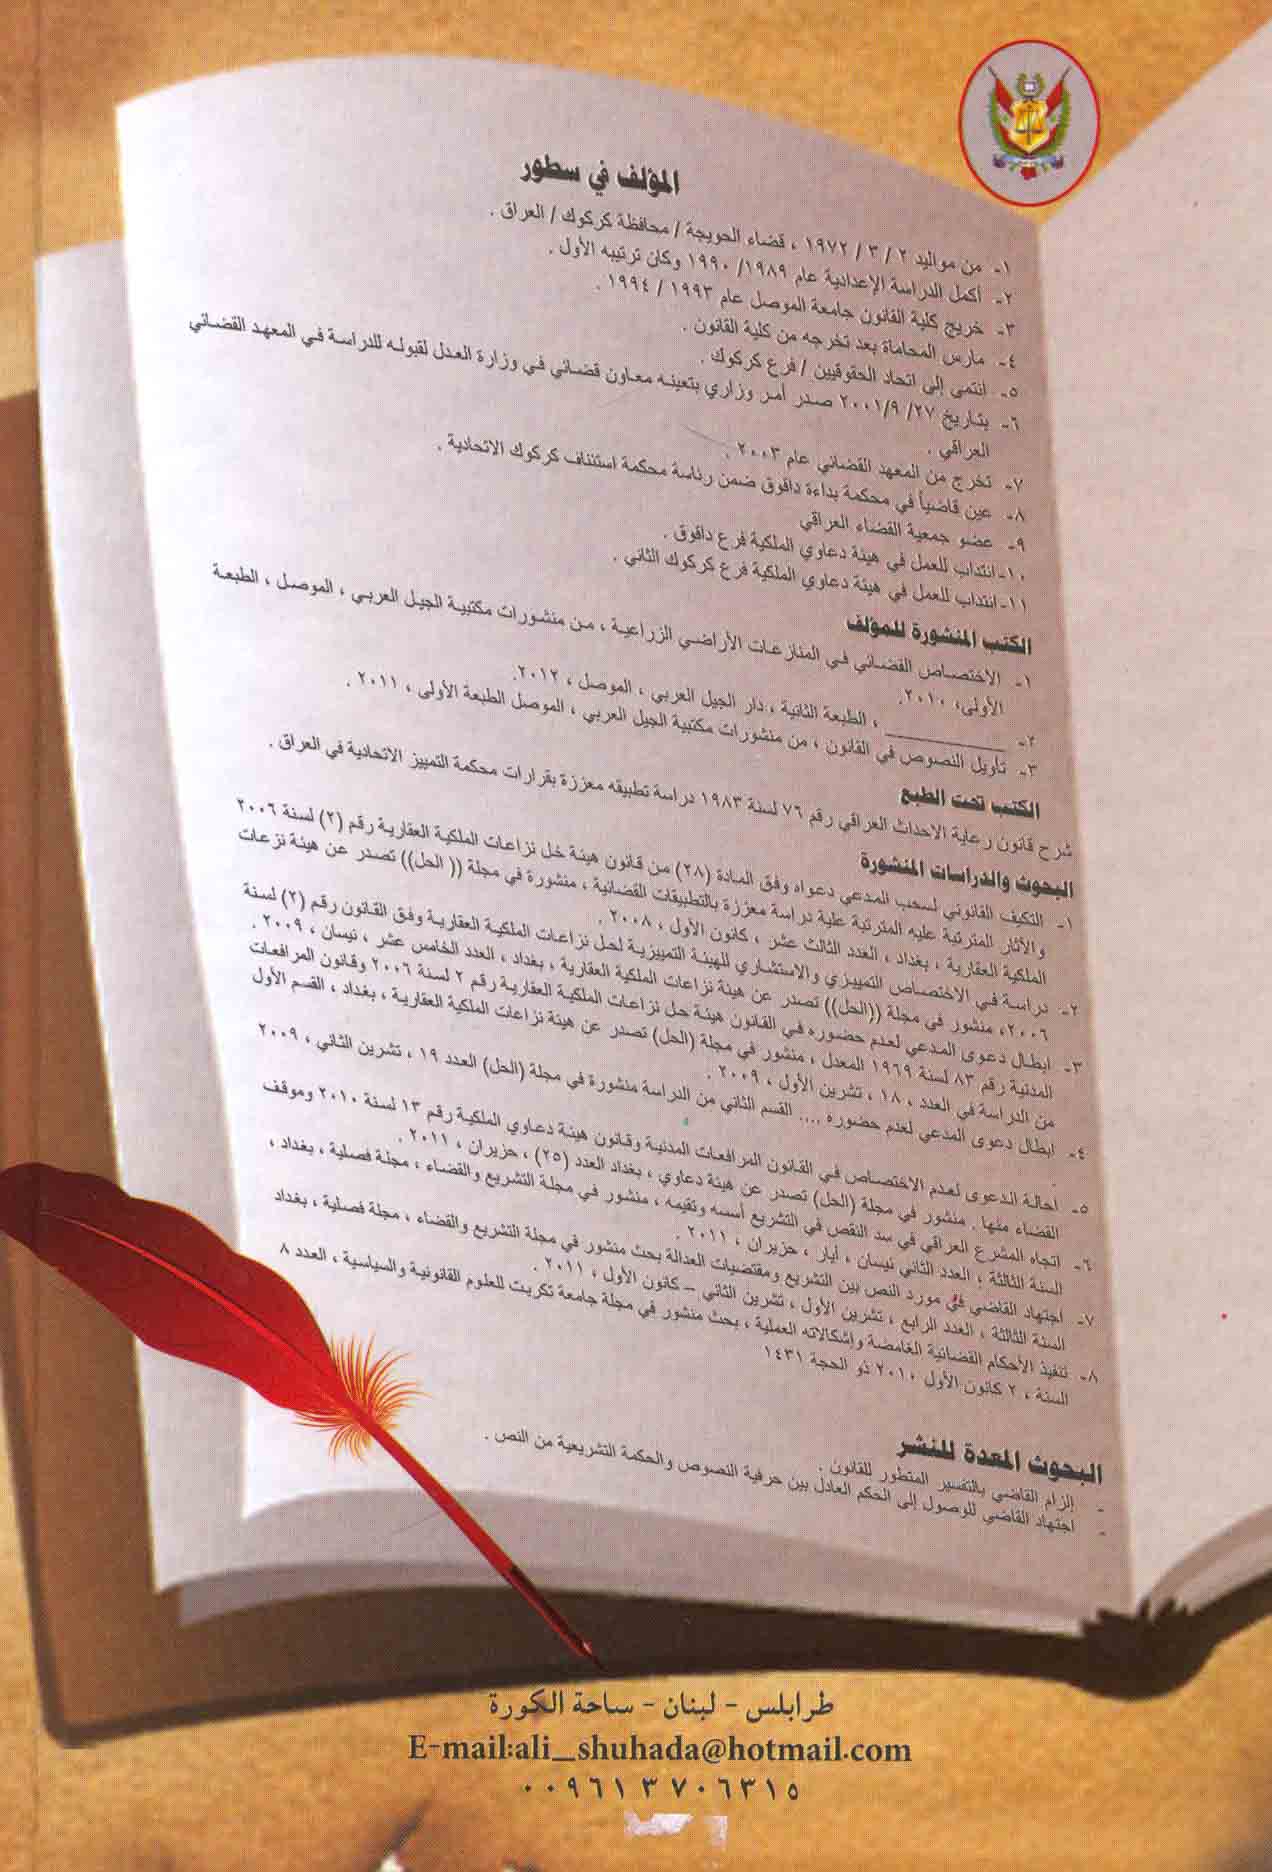 المؤلف في سطور
١- من مواليد ٢ / ٣ / ١٩٧٢ ، قضاء الحويجة / محافظة كركوك / العراق .
٢- أكمل الدراسة الإعدادية عام ١٩٨٩/ ١٩٩٠ وكان ترتيبه الأول .
٣- خريج كلية القانون جامعة الموصل عام ١٩٩٣ / ١٩٩٤ .
٤- مارس المحاماة بعد تخرجه من كلية القانون .
٥- انتمى إلى اتحاد الحقوقيين / فرع كركوك .
٦- بتاريخ ٢٧/ ٢٠٠١/٩ صدر أمر وزاري بتعينه معاون قضائي في وزارة العدل لقبوله للدراسة في المعهد القضائي
العراقي .
٧- تخرج من المعهد القضائي عام ٢٠٠٣ .
٨- عين قاضياً في محكمة بداءة داقوق ضمن رئاسة محكمة استئناف كركوك الاتحادية .
٩- عضو جمعية القضاء العراقي
١٠- انتداب للعمل في هيئة دعاوي الملكية فرع داقوق .
١١- انتداب للعمل في هيئة دعاوي الملكية فرع كركوك الثاني .
الكتب المنشورة للمؤلف
١- الاختصاص القضائي في المنازعات الأراضي الزراعية ، من منشورات مكتبية الجيل العربي ، الموصل ، الطبعة
الأولى، ٢٠١٠.
٢- ____________ ، الطبعة الثانية ، دار الجيل العربي ، الموصل ، ٢٠١٢.
٣- تأويل النصوص في القانون ، من منشورات مكتبية الجيل العربي ، الموصل الطبعة الأولى ، ٢٠١١ .
الكتب تحت الطبع
شرح قانون رعاية الاحداث العراقي رقم ٧٦ لسنة ١٩٨٣ دراسة تطبيقه معززة بقرارات محكمة التمييز الاتحادية في العراق .
البحوث والدراسات المنشورة
١- التكيف القانوني لسحب المدعي دعواه وفق المادة (٢٨) من قانون هيئة خل نزاعات الملكية العقارية رقم (٢) لسنة ٢٠٠٦
والآثار المترتبة عليه المترتبة علية دراسة معززة بالتطبيقات القضائية ، منشورة في مجلة (( الحل)) تصدر عن هيئة نزعات
الملكية العقارية ، بغداد ، العدد الثالث عشر ، كانون الأول ، ٢٠٠٨ .
٢- دراسة في الاختصاص التمييزي والاستشاري للهيئة التمييزية لحل نزاعات الملكية العقارية وفق القانون رقم (٢) لسنة
٢٠٠٦، منشور في مجلة ((الحل)) تصدر عن هيئة نزاعات الملكية العقارية ، بغداد ، العدد الخامس عشر ، نيسان ، ٢٠٠٩ .
٣- ابطال دعوى المدعي لعدم حضوره في القانون هيئة حل نزاعات الملكية العقارية رقم ٢ لسنة ٢٠٠٦ وقانون المرافعات
المدنية رقم ٨٣ لسنة ١٩٦٩ المعدل ، منشور في مجلة (الحل) تصدر عن هيئة نزاعات الملكية العقارية ، بغداد ، القسم الأول
من الدراسة في العدد ، ١٨ ، تشرين الأول ، ٢٠٠٩ .
٤- ابطال دعوى المدعي لعدم حضوره .... القسم الثاني من الدراسة منشورة في مجلة (الحل) العدد ١٩ ، تشرين الثاني ، ٢٠٠٩
.
٥- احالة الدعوى لعدم الاختصاص في القانون المرافعات المدنية وقانون هيئة دعاوي الملكية رقم ١٣ لسنة ٢٠١٠ وموقف
القضاء منها . منشور في مجلة (الحل) تصدر عن هيئة دعاوي ، بغداد العدد (٢٥) ، حزيران ، ٢٠١١ .
٦- اتجاه المشرع العراقي في سد النقص في التشريع أسسه وتقيمه ، منشور في مجلة التشريع والقضاء ، مجلة فصلية ، بغداد ،
السنة الثالثة ، العدد الثاني نيسان ، أيار ، حزيران ، ٢٠١١ .
٧- اجتهاد القاضي في مورد النص بين التشريع ومقتضيات العدالة بحث منشور في مجلة التشريع والقضاء ، مجلة فصلية ، بغداد
السنة الثالثة ، العدد الرابع ، تشرين الأول ، تشرين الثاني – كانون الأول ، ٢٠١١ .
٨- تنفيذ الأحكام القضائية الغامضة وإشكالاته العملية ، بحث منشور في مجلة جامعة تكريت للعلوم القانونية والسياسية ، العدد ٨
السنة ، ٢ كانون الأول ٢٠١٠ ذو الحجة ١٤٣١
البحوث المعدة للنشر
- إلزام القاضي بالتفسير المتطور للقانون .
- اجتهاد القاضي للوصول إلى الحكم العادل بين حرفية النصوص والحكمة التشريعية من النص .
طرابلس - لبنان - ساحة الكورة
E-mail:ali_shuhada@hotmail.com
٠٠٩٦١٣٧٠٦٣١٥